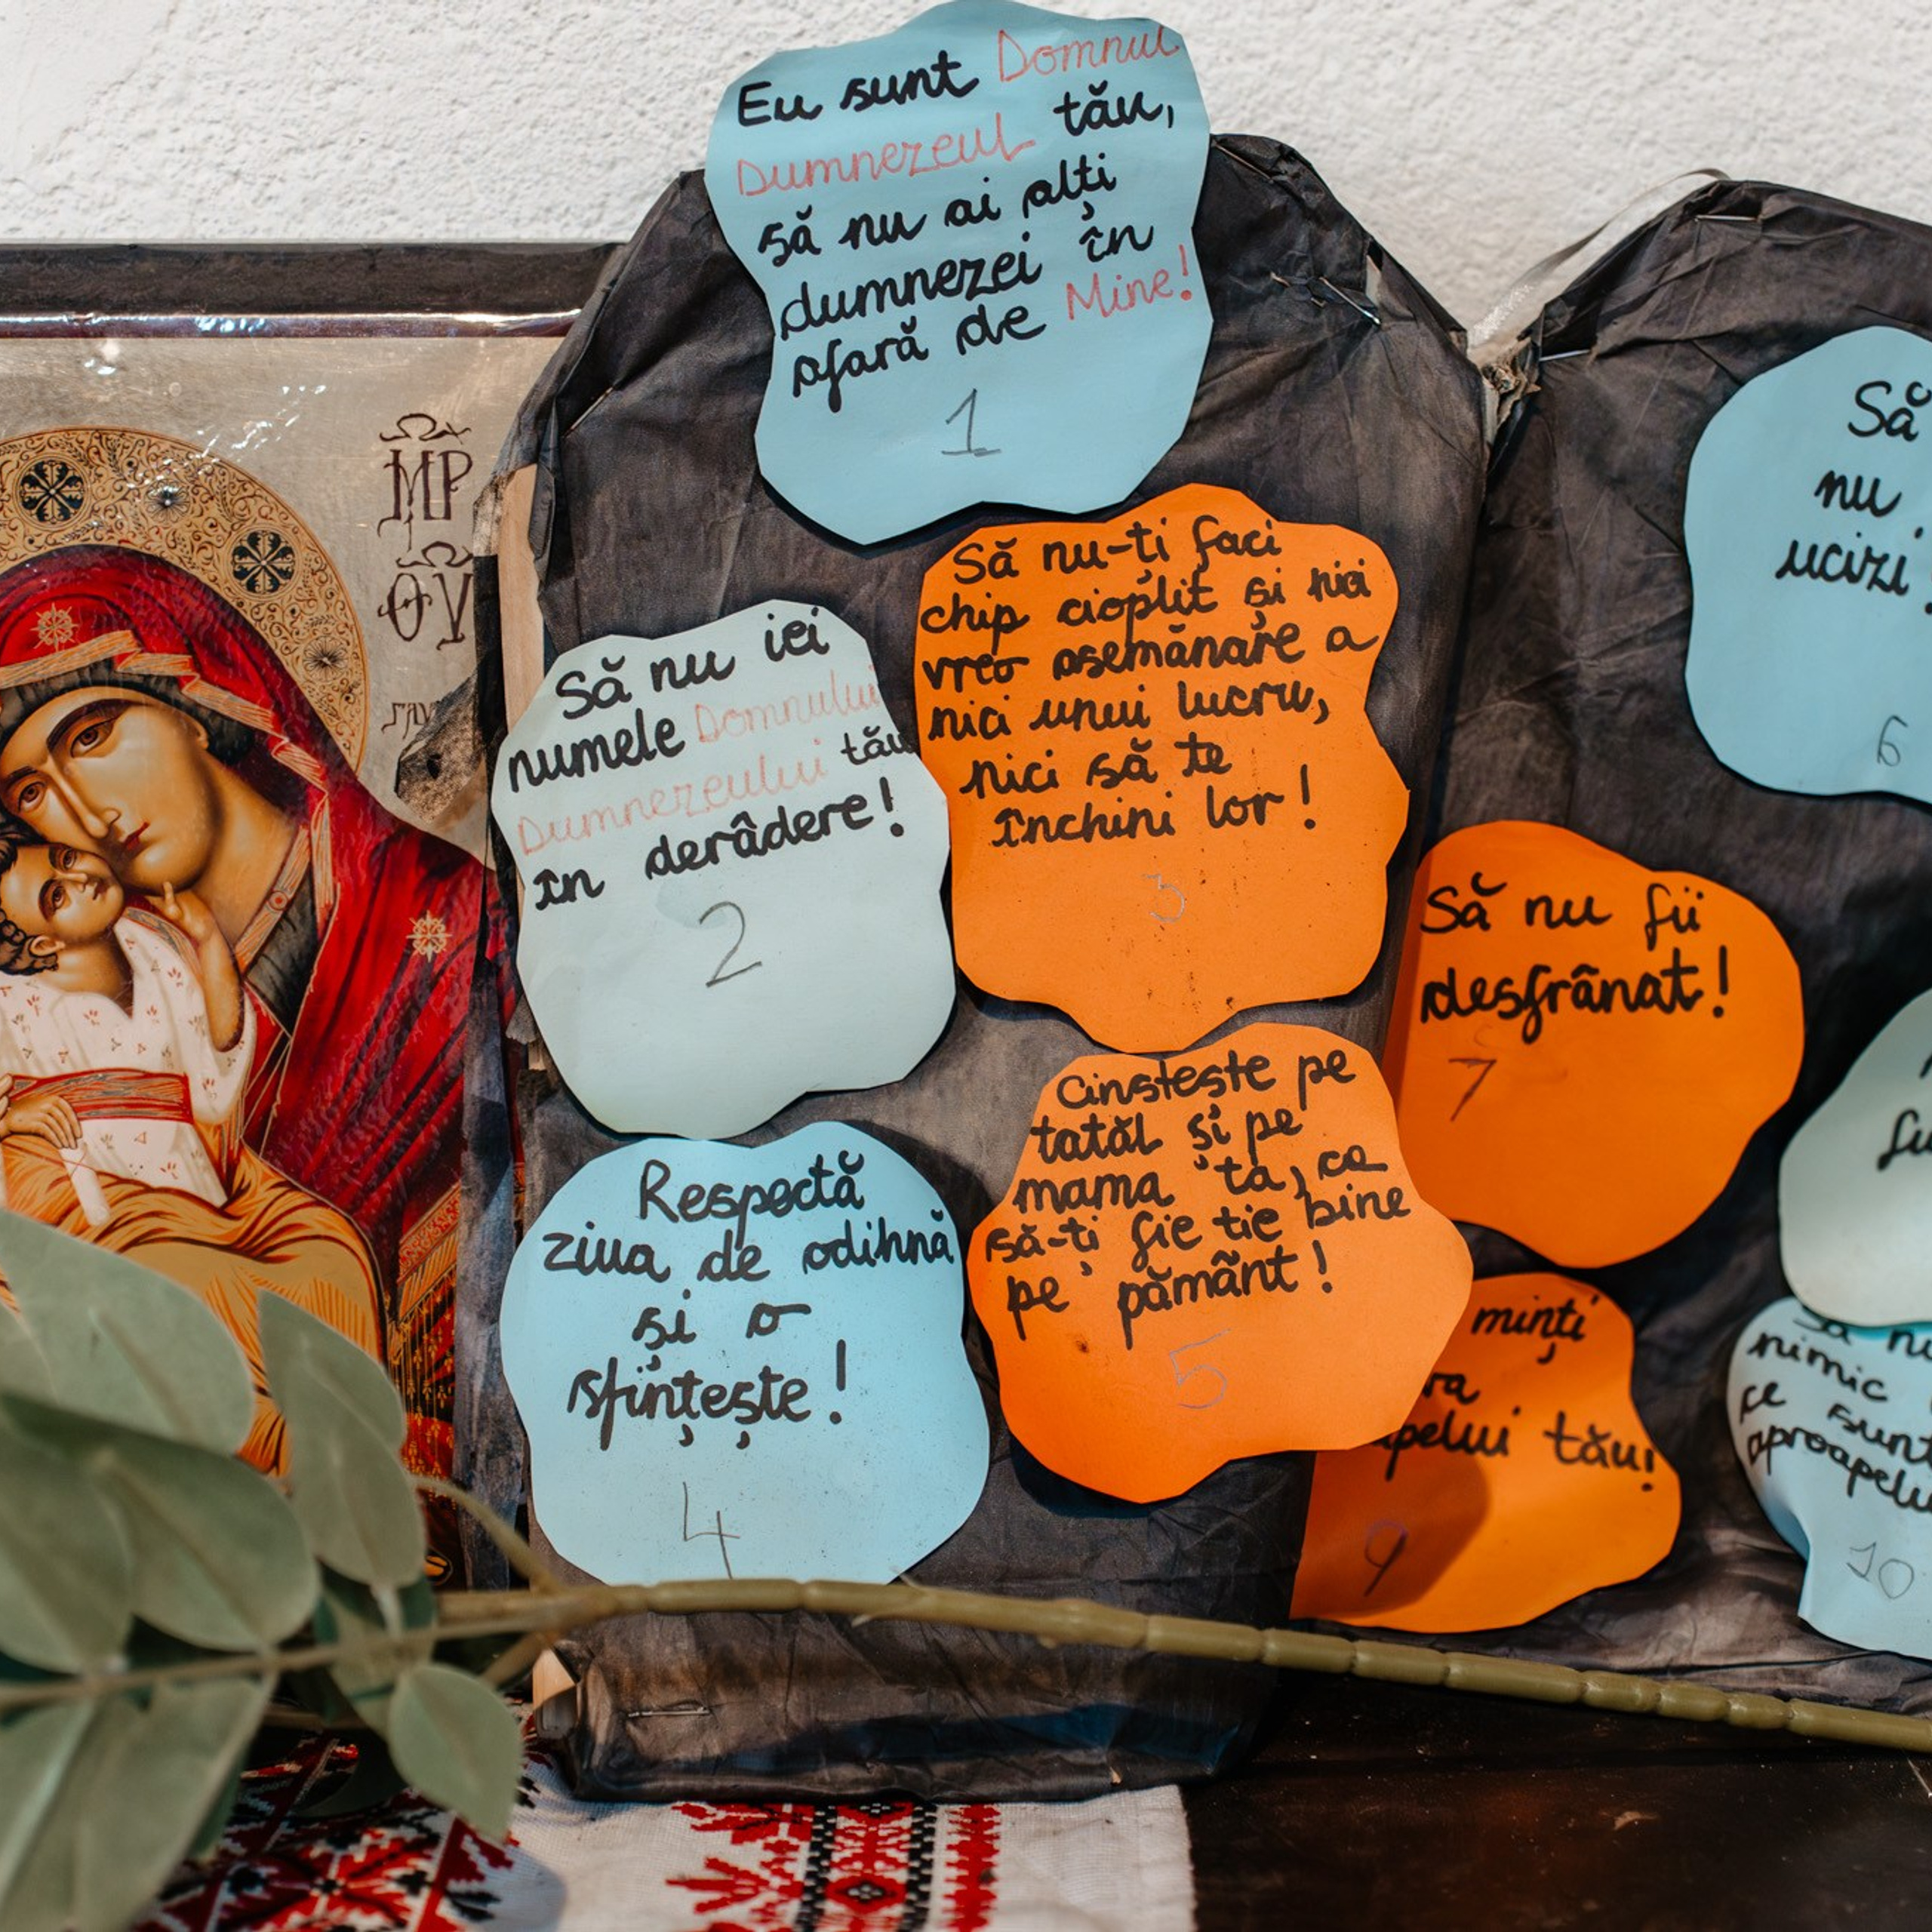 Eu sunt Domnul
Dumnezeul tău,
să nu ai alți
dumnezei în
afară de Mine!
1
Să nu iei
numele Domnului
Dumnezeului tău
în derâdere!
2
Să nu-ți faci
chip cioplit și nici
vreo asemănare a
nici unui lucru,
nici să te
închini lor!
3
Respectă
ziua de odihnă
și o
sfințește!
4
Cinstește pe
tatăl și pe
mama ta, ca
să-ți fie ție bine
pe pământ!
5
Să
nu
ucizi!
6
Să nu fii
desfrânat!
7
minți
tău!
9
nimic
ce sunt
10
ΜΡ
ΘΥ